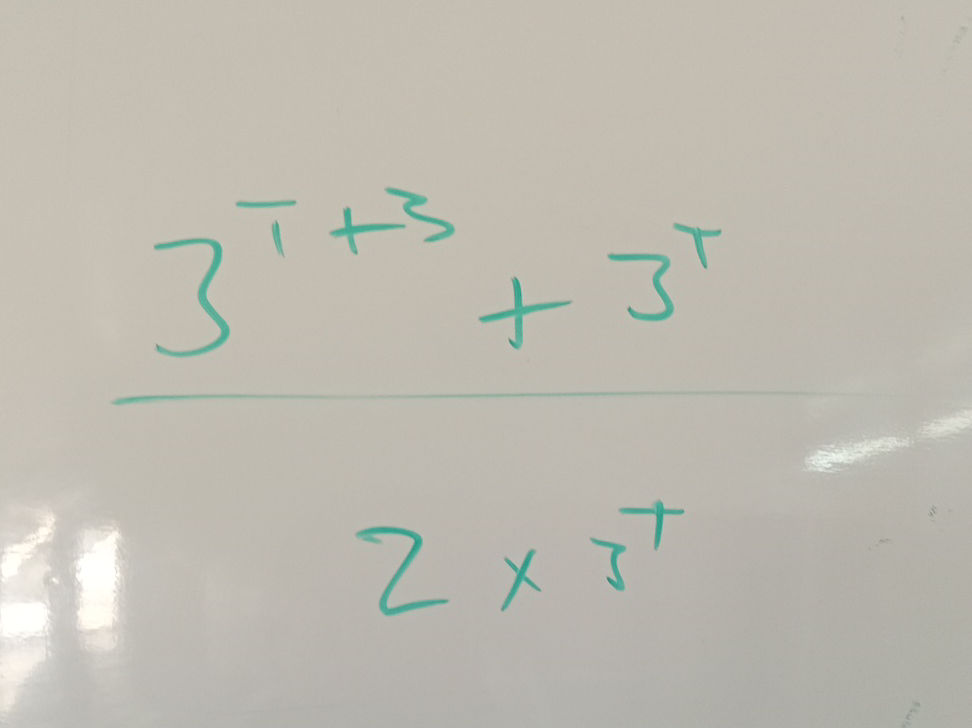 3^{T+3} + 3^T
2 × 3^T